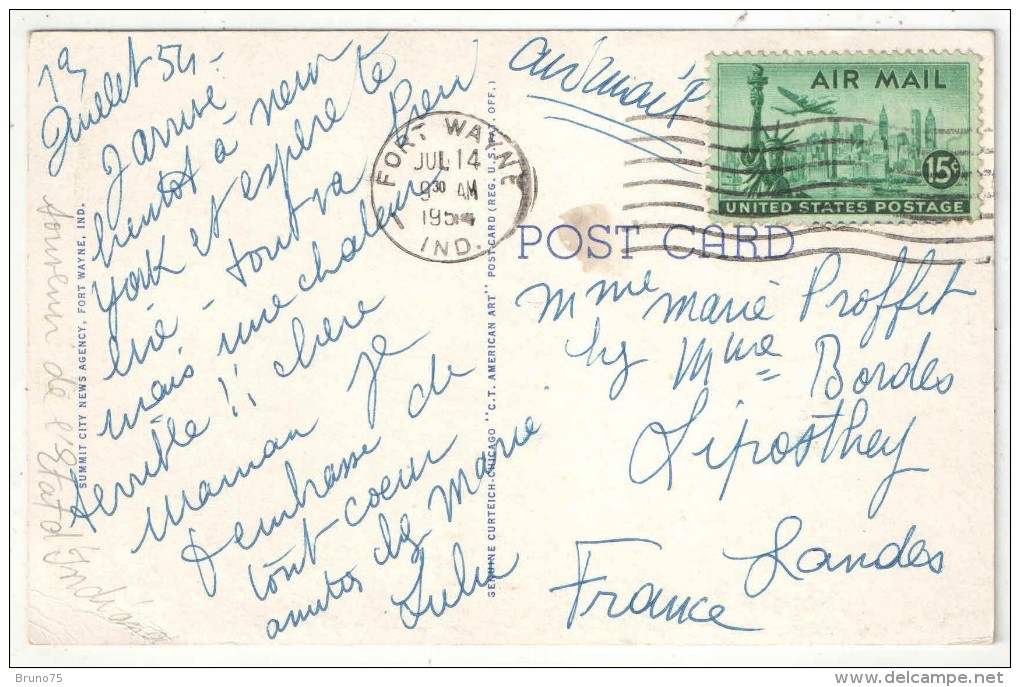 13
Juillet 54.
J'arrive
bientot à new
York et espère te
lire - tout va bien
mais une chaleur
terrible !! chere
maman je
t'embrasse de
tout coeur
amities chez marie
Lulu
souvenir de l'Etat d'Indiana
SUMMIT CITY NEWS AGENCY, FORT WAYNE, IND.
GENUINE CURTEICH-CHICAGO "C.T. AMERICAN ART" POST CARD (REG. U.S. PAT. OFF.)
air mail
FORT WAYNE
JUL 14
9 30 AM
1954
IND.
AIR MAIL
15¢
UNITED STATES POSTAGE
POST CARD
Mme marie Proffit
chez Mme Bordes
Liposthey
Landes
France
Bruno75
www.delcampe.net